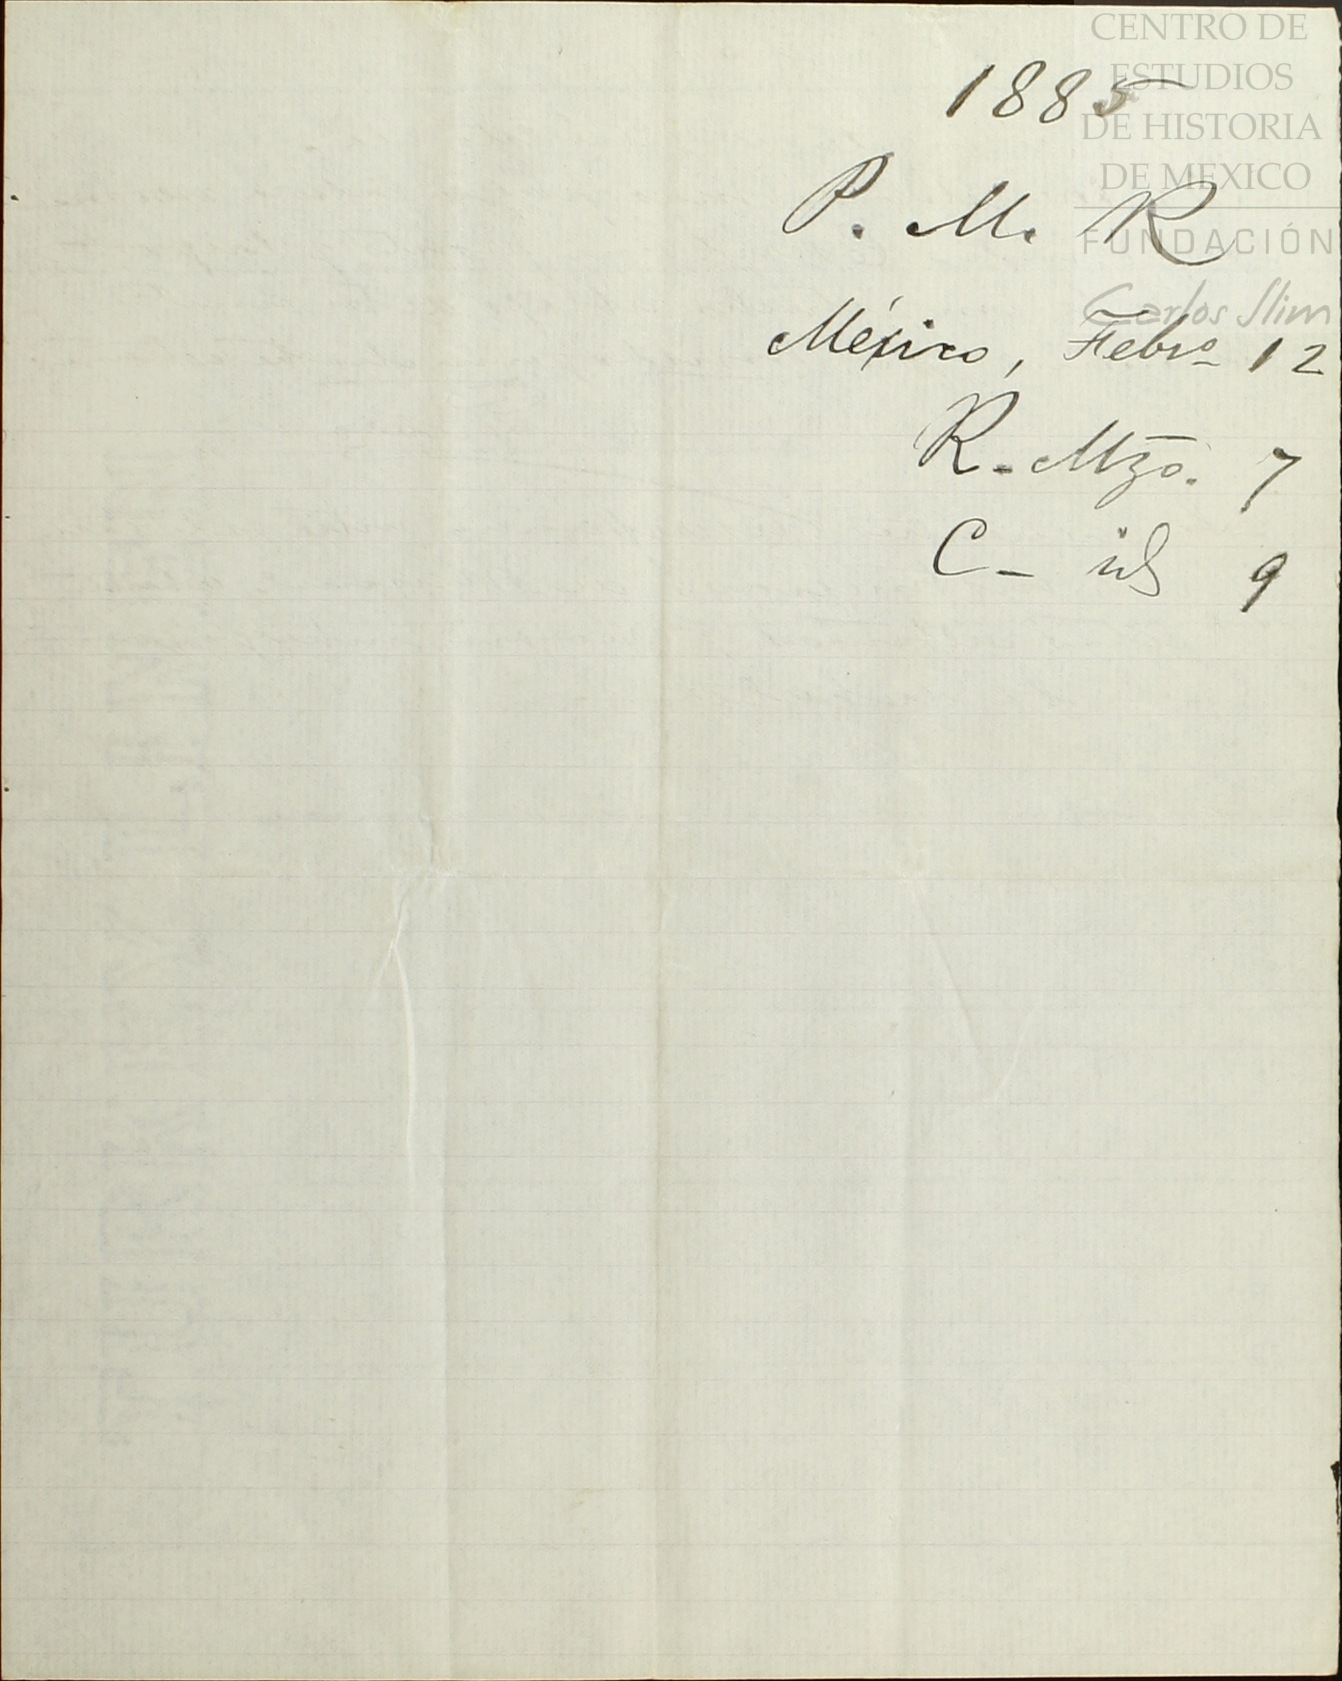 CENTRO DE
ESTUDIOS
DE HISTORIA
DE MEXICO
FUNDACIÓN
Carlos Slim
1885
P. M. R
México, Febro 12
R. Mzo. 7
C - id 9